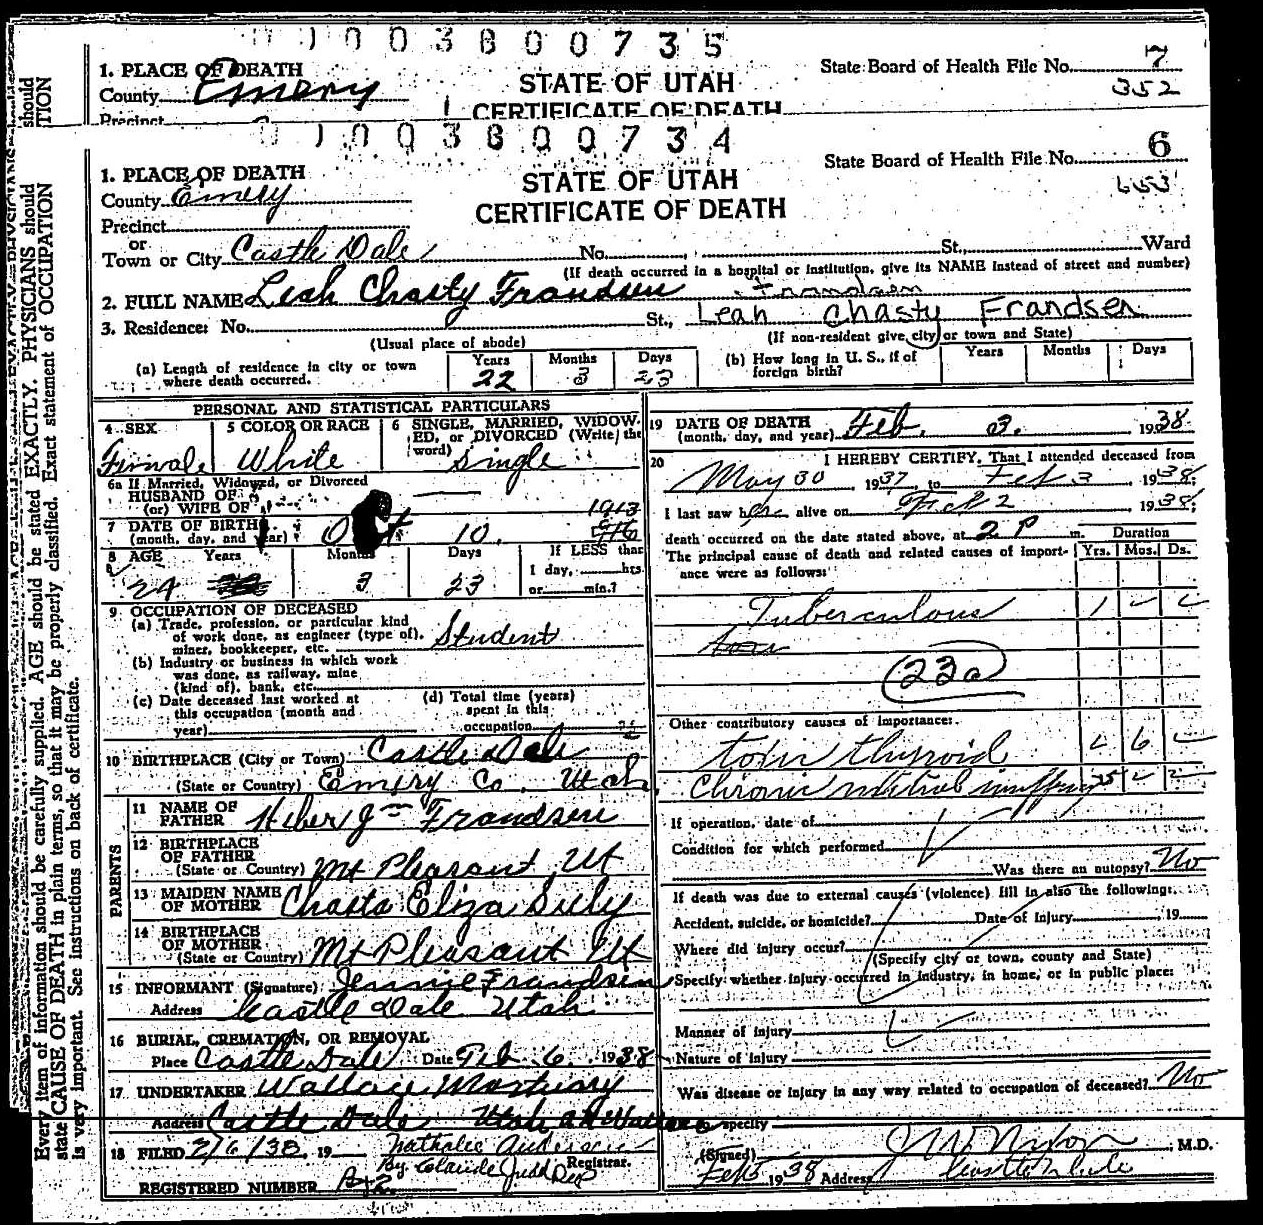 0 1 0 0 3 8 0 0 7 3 5
1. PLACE OF DEATH
County Emery
Precinct
STATE OF UTAH
CERTIFICATE OF DEATH
State Board of Health File No. 7
352
0 1 0 0 3 8 0 0 7 3 4
1. PLACE OF DEATH
County Emery
Precinct
or
Town or City Castle Dale No. St. Ward
STATE OF UTAH
CERTIFICATE OF DEATH
State Board of Health File No. 6
(If death occurred in a hospital or institution, give its NAME instead of street and number)
2. FULL NAME Leah Chasty Frandsen Frandsen
3. Residence: No. St., Leah Chasty Frandsen
(Usual place of abode) (If non-resident give city or town and State)
(a) Length of residence in city or town where death occurred. Years 22 Months 3 Days 23
(b) How long in U. S., if of foreign birth? Years Months Days
PERSONAL AND STATISTICAL PARTICULARS
4 SEX Female
5 COLOR OR RACE White
6 SINGLE, MARRIED, WIDOWED, or DIVORCED (Write the word) Single
6a If Married, Widowed, or Divorced
HUSBAND OF
(or) WIFE OF
7 DATE OF BIRTH
(month, day, and year) Oct 10. 1913
8 AGE Years 24 Months 3 Days 23
If LESS than
1 day, hrs.
or min.?
9 OCCUPATION OF DECEASED
(a) Trade, profession, or particular kind
of work done, as engineer (type of),
miner, bookkeeper, etc. Student
(b) Industry or business in which work
was done, as railway, mine
(kind of), bank, etc.
(c) Date deceased last worked at
this occupation (month and
year)
(d) Total time (years)
spent in this
occupation
10 BIRTHPLACE (City or Town) Castle Dale
(State or Country) Emery Co. Utah
PARENTS
11 NAME OF
FATHER Heber Frandsen
12 BIRTHPLACE
OF FATHER
(State or Country) Mt Pleasant, Ut
13 MAIDEN NAME
OF MOTHER Chasta Eliza Seely
14 BIRTHPLACE
OF MOTHER
(State or Country) Mt Pleasant Ut
15 INFORMANT (Signature) Jennie Frandsen
Address Castle Dale Utah
16 BURIAL, CREMATION, OR REMOVAL
Place Castle Dale Date Feb 6 1938
17 UNDERTAKER Wallace Mortuary
Address Castle Dale Utah
18 FILED 2/6/38, 19
Registrar.
By Claude Judd Dep
REGISTERED NUMBER
19 DATE OF DEATH
(month, day, and year) Feb. 3. 1938
20 I HEREBY CERTIFY, That I attended deceased from
May 30, 1937, to Feb 3 1938;
I last saw her alive on Feb 2 1938;
death occurred on the date stated above, at 2 P m.
The principal cause of death and related causes of importance were as follows:
Duration
Yrs. Mos. Ds.
Tuberculous 1
23a
Other contributory causes of importance:
toxic thyroid 6
Chronic mitral
If operation, date of
Condition for which performed
Was there an autopsy? No
If death was due to external causes (violence) fill in also the following:
Accident, suicide, or homicide? Date of Injury , 19
Where did injury occur?
(Specify city or town, county and State)
Specify whether injury occurred in industry, in home, or in public place:
Manner of injury
Nature of injury
Was disease or injury in any way related to occupation of deceased? No
specify
(Signed) J W Nixon, M.D.
Feb 5 1938 Address Castle Dale
Every item of information should be carefully supplied. AGE should be stated EXACTLY. PHYSICIANS should
state CAUSE OF DEATH in plain terms, so that it may be properly classified. Exact statement of OCCUPATION
is very important. See instructions on back of certificate.